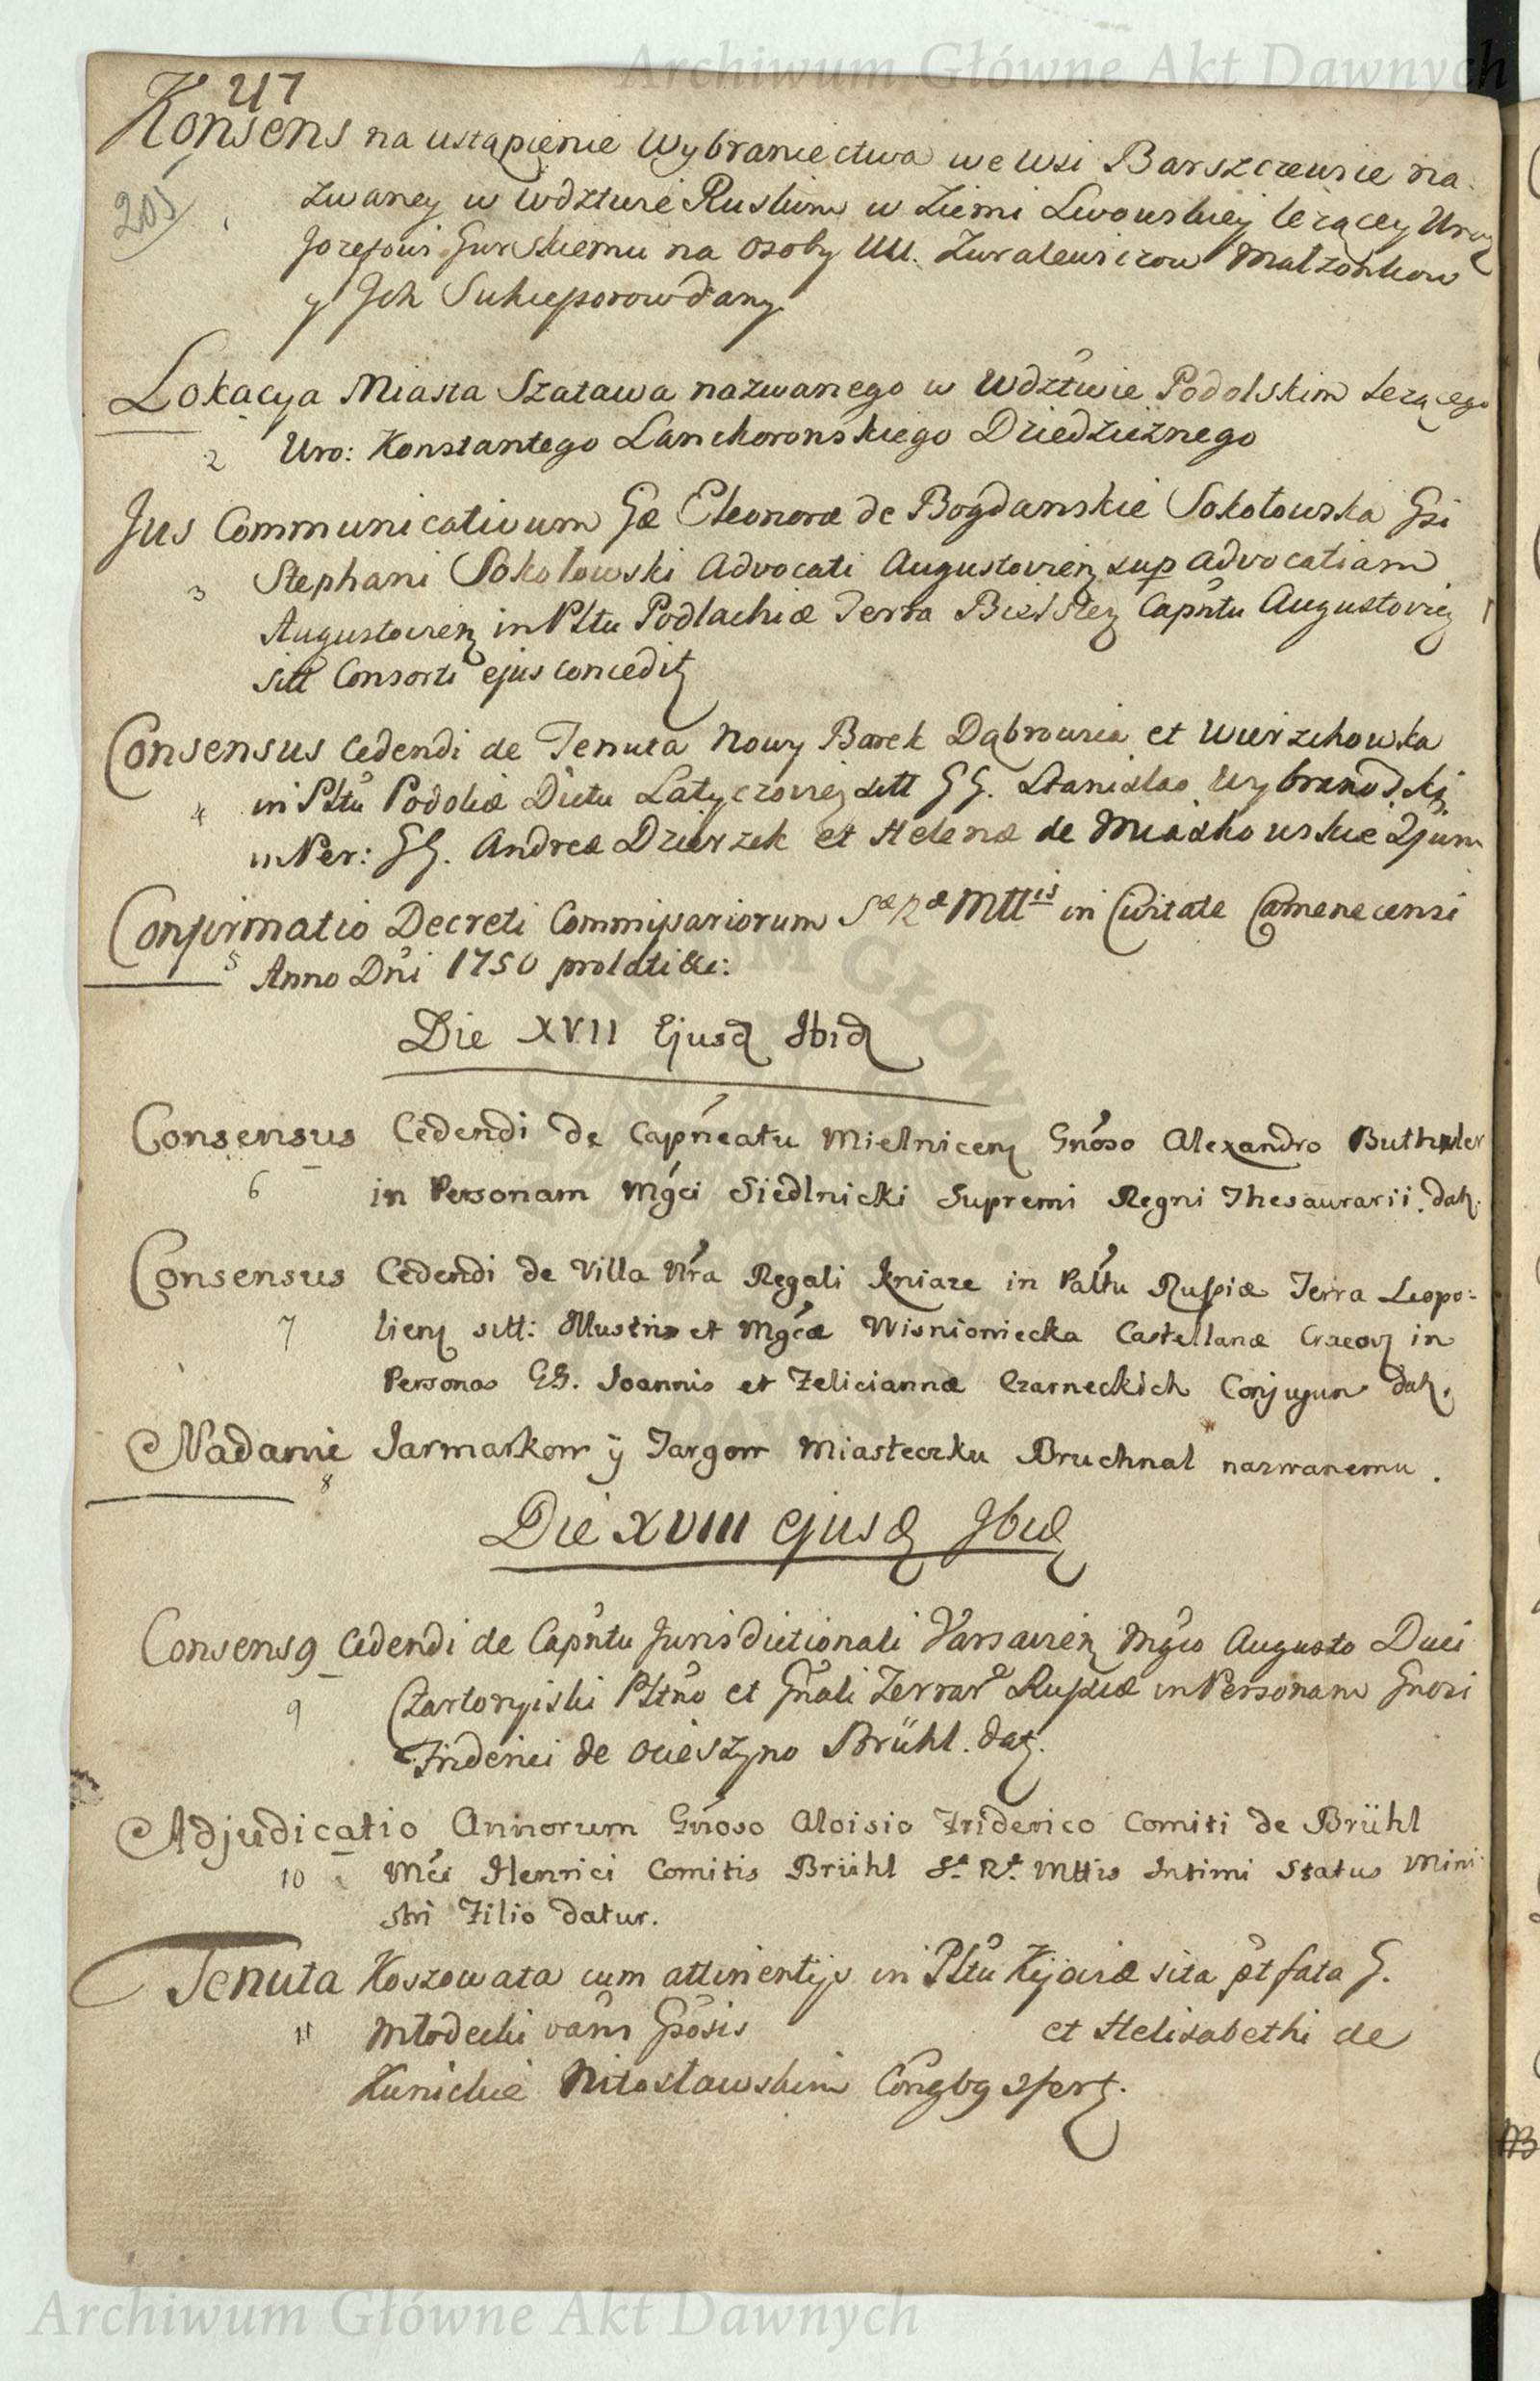 Archiwum Główne Akt Dawnych
217
Konsens na ustąpienie Wybraniectwa we Wsi Barszczewie na-
205
zwaney w Wdztwie Ruskim w Ziemi Lwowskiey lezącey Uro
Jozefowi Gurskiemu na Osoby UU. Zuralewiczow Małzonkow
y Jch Sukcessorow dany
Lokacya Miasta Szatawa nazwanego w Wdztwie Podolskim lezącego
2 Uro: Konstantego Lanckoronskiego Dziedzicznego
Jus Communicativum Gæ Eleonoræ de Bogdanskie Sokołowska Gsi
3 Stephani Sokołowski Advocati Augustovien sup advocatiam
Augustovien in Pltu Podlachiæ Terra Bielsken Capntu Augustovien
sitt Consorti ejus concedit
Consensus Cedendi de Tenuta Nowy Barek Dąbrowia et Wierzchowka
4 in Pltu Podoliæ Dictu Latyczovien sitt GG. Stanislao Wybranowski
in Per: GG. Andreæ Dzierzek et Helenæ de Miaskowskie Zjum
Confirmatio Decreti Commissariorum Sæ Ræ Mttis in Civitate Camenecensi
5 Anno Dni 1750 prolati &c:
Die XVII Ejusd Ibid
Consensus Cedendi de Capneatu Mielnicen Gnoso Alexandro Buthler
6 in Personam Mgci Siedlnicki Supremi Regni Thesaurarii dat.
Consensus Cedendi de Villa Nra Regali Kniaze in Paltu Russiæ Terra Leopo:
7 lien sitt: Illustris et Mgcæ Wisniowiecka Castellanæ Cracov in
Personas GG. Joannis et Feliciannæ Czarneckich Conjugun dat.
Nadanie Jarmarkow ÿ Targow Miasteczku Bruchnal nazwanemu.
8
Die XVIII ejusd Ibid
Consens9 Cedendi de Capntu Jurisdictionali Varsavien Mgco Augusto Duci
9 Czartoryiski Pltno et Gnali Terrar Russiæ in Personam Gnosi
Friderici de Ocieszyno Brühl. dat.
Adjudicatio Annorum Gnoso Aloisio Friderico Comiti de Brühl
10 Mci Henrici Comitis Brühl S. R. Mttis Intimi Status Mini-
stri Filio datur.
Tenuta Koszowata cum attinentijs in Pltu Kijoviæ sita pt fata G.
11 Młodecki et Helisabethi de
Kunickie Nitosławskim Congbg
Archiwum Główne Akt Dawnych